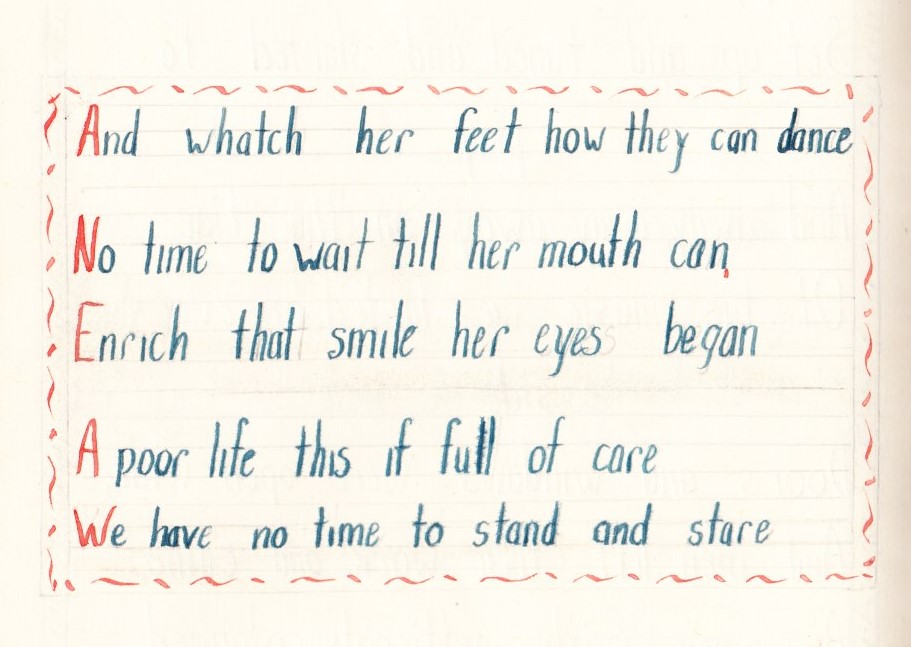 And whatch her feet how they can dance
No time to wait till her mouth can,
Enrich that smile her eyes began
A poor life this if full of care
We have no time to stand and stare